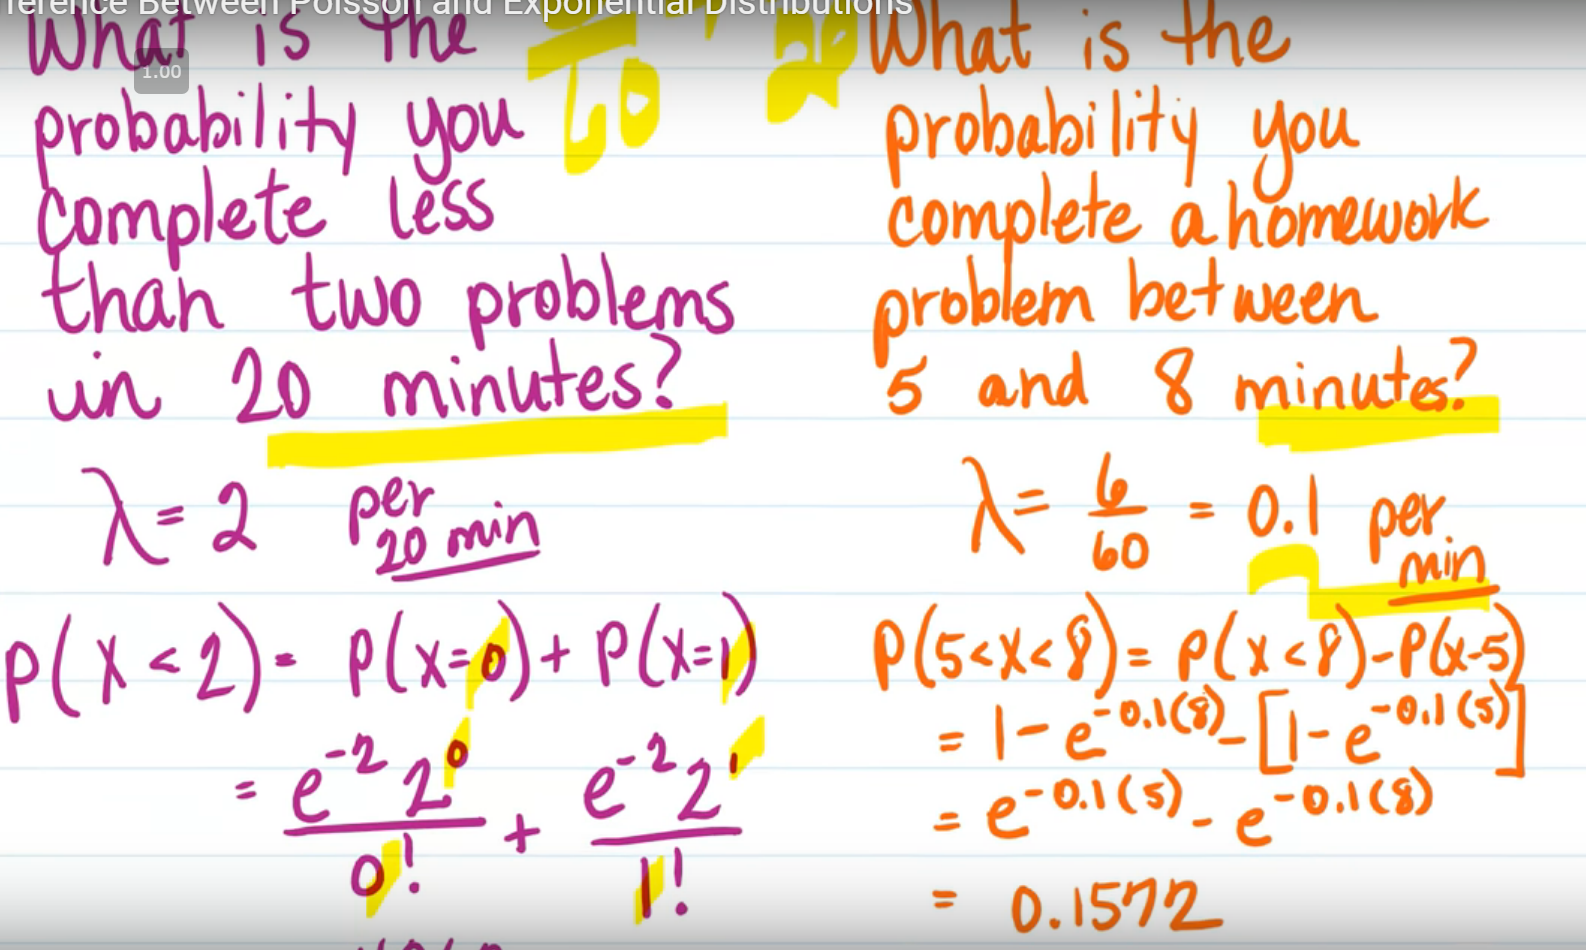 ference Between Poisson and Exponential Distributions
1.00
What is the
probability you
complete less
than two problems
in 20 minutes?
λ = 2 per
20 min
P(X < 2) = P(X=0) + P(X=1)
= e^-2 2^0 / 0! + e^-2 2^1 / 1!
What is the
probability you
complete a homework
problem between
5 and 8 minutes?
λ = 6/60 = 0.1 per
min
P(5<X<8) = P(X<8) - P(X-5)
= 1 - e^-0.1(8) - [1 - e^-0.1(5)]
= e^-0.1(5) - e^-0.1(8)
= 0.1572